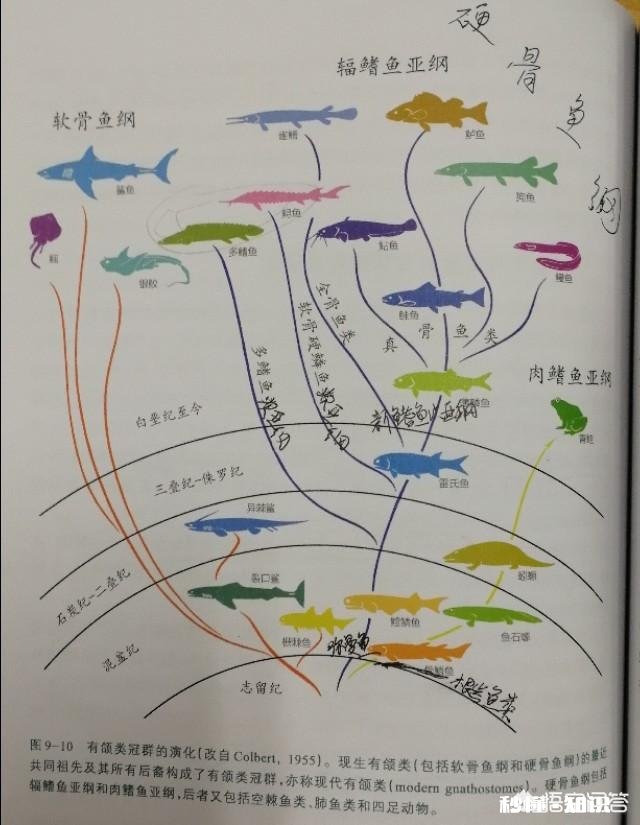 硬
骨
鱼
纲
辐鳍鱼亚纲
软骨鱼纲
雀鳝
鲈鱼
鲨鱼
鲟鱼
狗鱼
鳐
银鲛
多鳍鱼
鲇鱼
鳗鱼
鲑鱼
全骨鱼类
软骨硬鳞鱼
多鳍鱼
真骨鱼类
肉鳍鱼亚纲
青蛙
新鳍鱼亚纲
白垩纪至今
雷氏鱼
三叠纪-侏罗纪
异棘鲨
石炭纪-二叠纪
裂口鲨
蚓螈
棘鱼
鳕鳞鱼
鱼石螈
泥盆纪
志留纪
图9-10 有颌类冠群的演化(改自Colbert, 1955)。现生有颌类(包括软骨鱼纲和硬骨鱼纲)的最近
共同祖先及其所有后裔构成了有颌类冠群,亦称现代有颌类(modern gnathostomes)。硬骨鱼纲包括
辐鳍鱼亚纲和肉鳍鱼亚纲,后者又包括空棘鱼类、肺鱼类和四足动物。